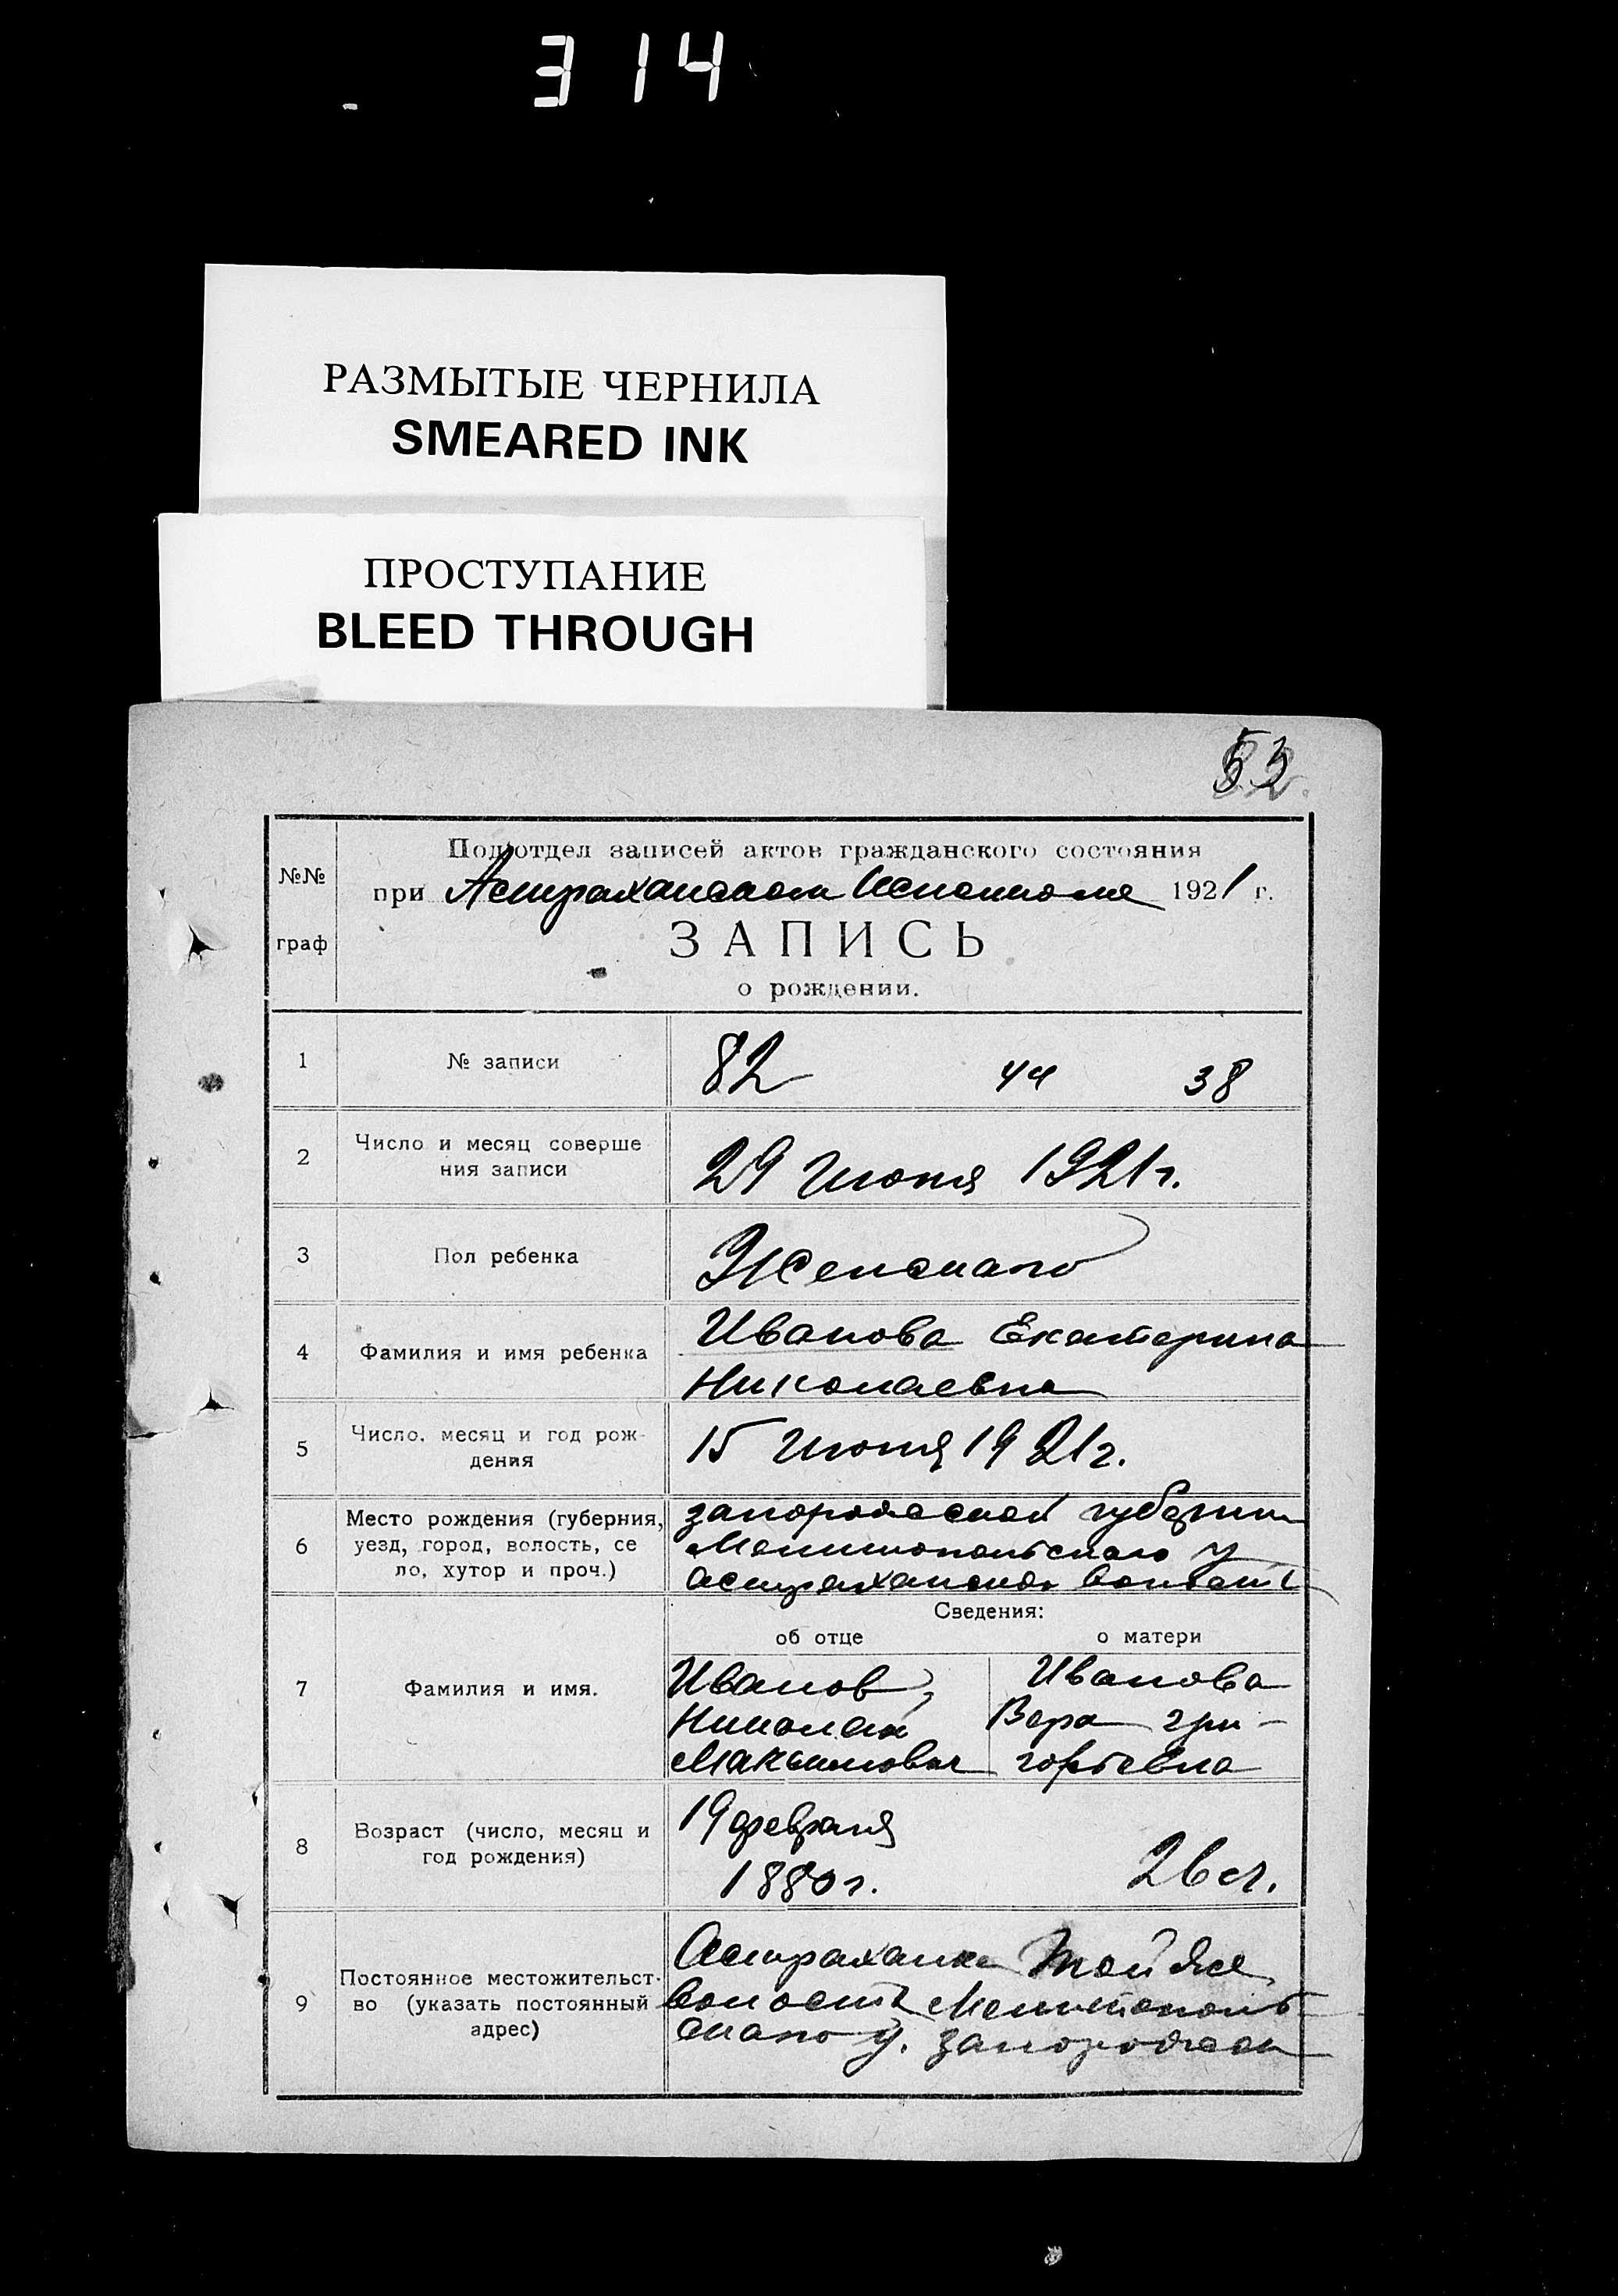 314
РАЗМЫТЫЕ ЧЕРНИЛА
SMEARED INK
ПРОСТУПАНИЕ
BLEED THROUGH
53
№№
граф
Подотдел записей актов гражданского состояния
при Астраханском Исполкоме 1921 г.
ЗАПИСЬ
о рождении.
1 № записи 82 44 38
2 Число и месяц соверше
ния записи 29 Июня 1921г.
3 Пол ребенка Женскаго
4 Фамилия и имя ребенка Иванова Екатерина
Николаевна
5 Число, месяц и год рож-
дения 15 Июня 1921г.
6 Место рождения (губерния, запорожской губернии
уезд, город, волость, се Мелитопольского у
ло, хутор и проч.) астраханской волости
Сведения:
об отце о матери
7 Фамилия и имя. Иванов Иванова
Николай Вера гри-
Максимович горьевна
8 Возраст (число, месяц и 19 февраля
год рождения) 1880г. 26 л.
9 Постоянное местожительст-
во (указать постоянный
адрес)
Астраханка той же
волости Мелитополь
скаго у. запорожской